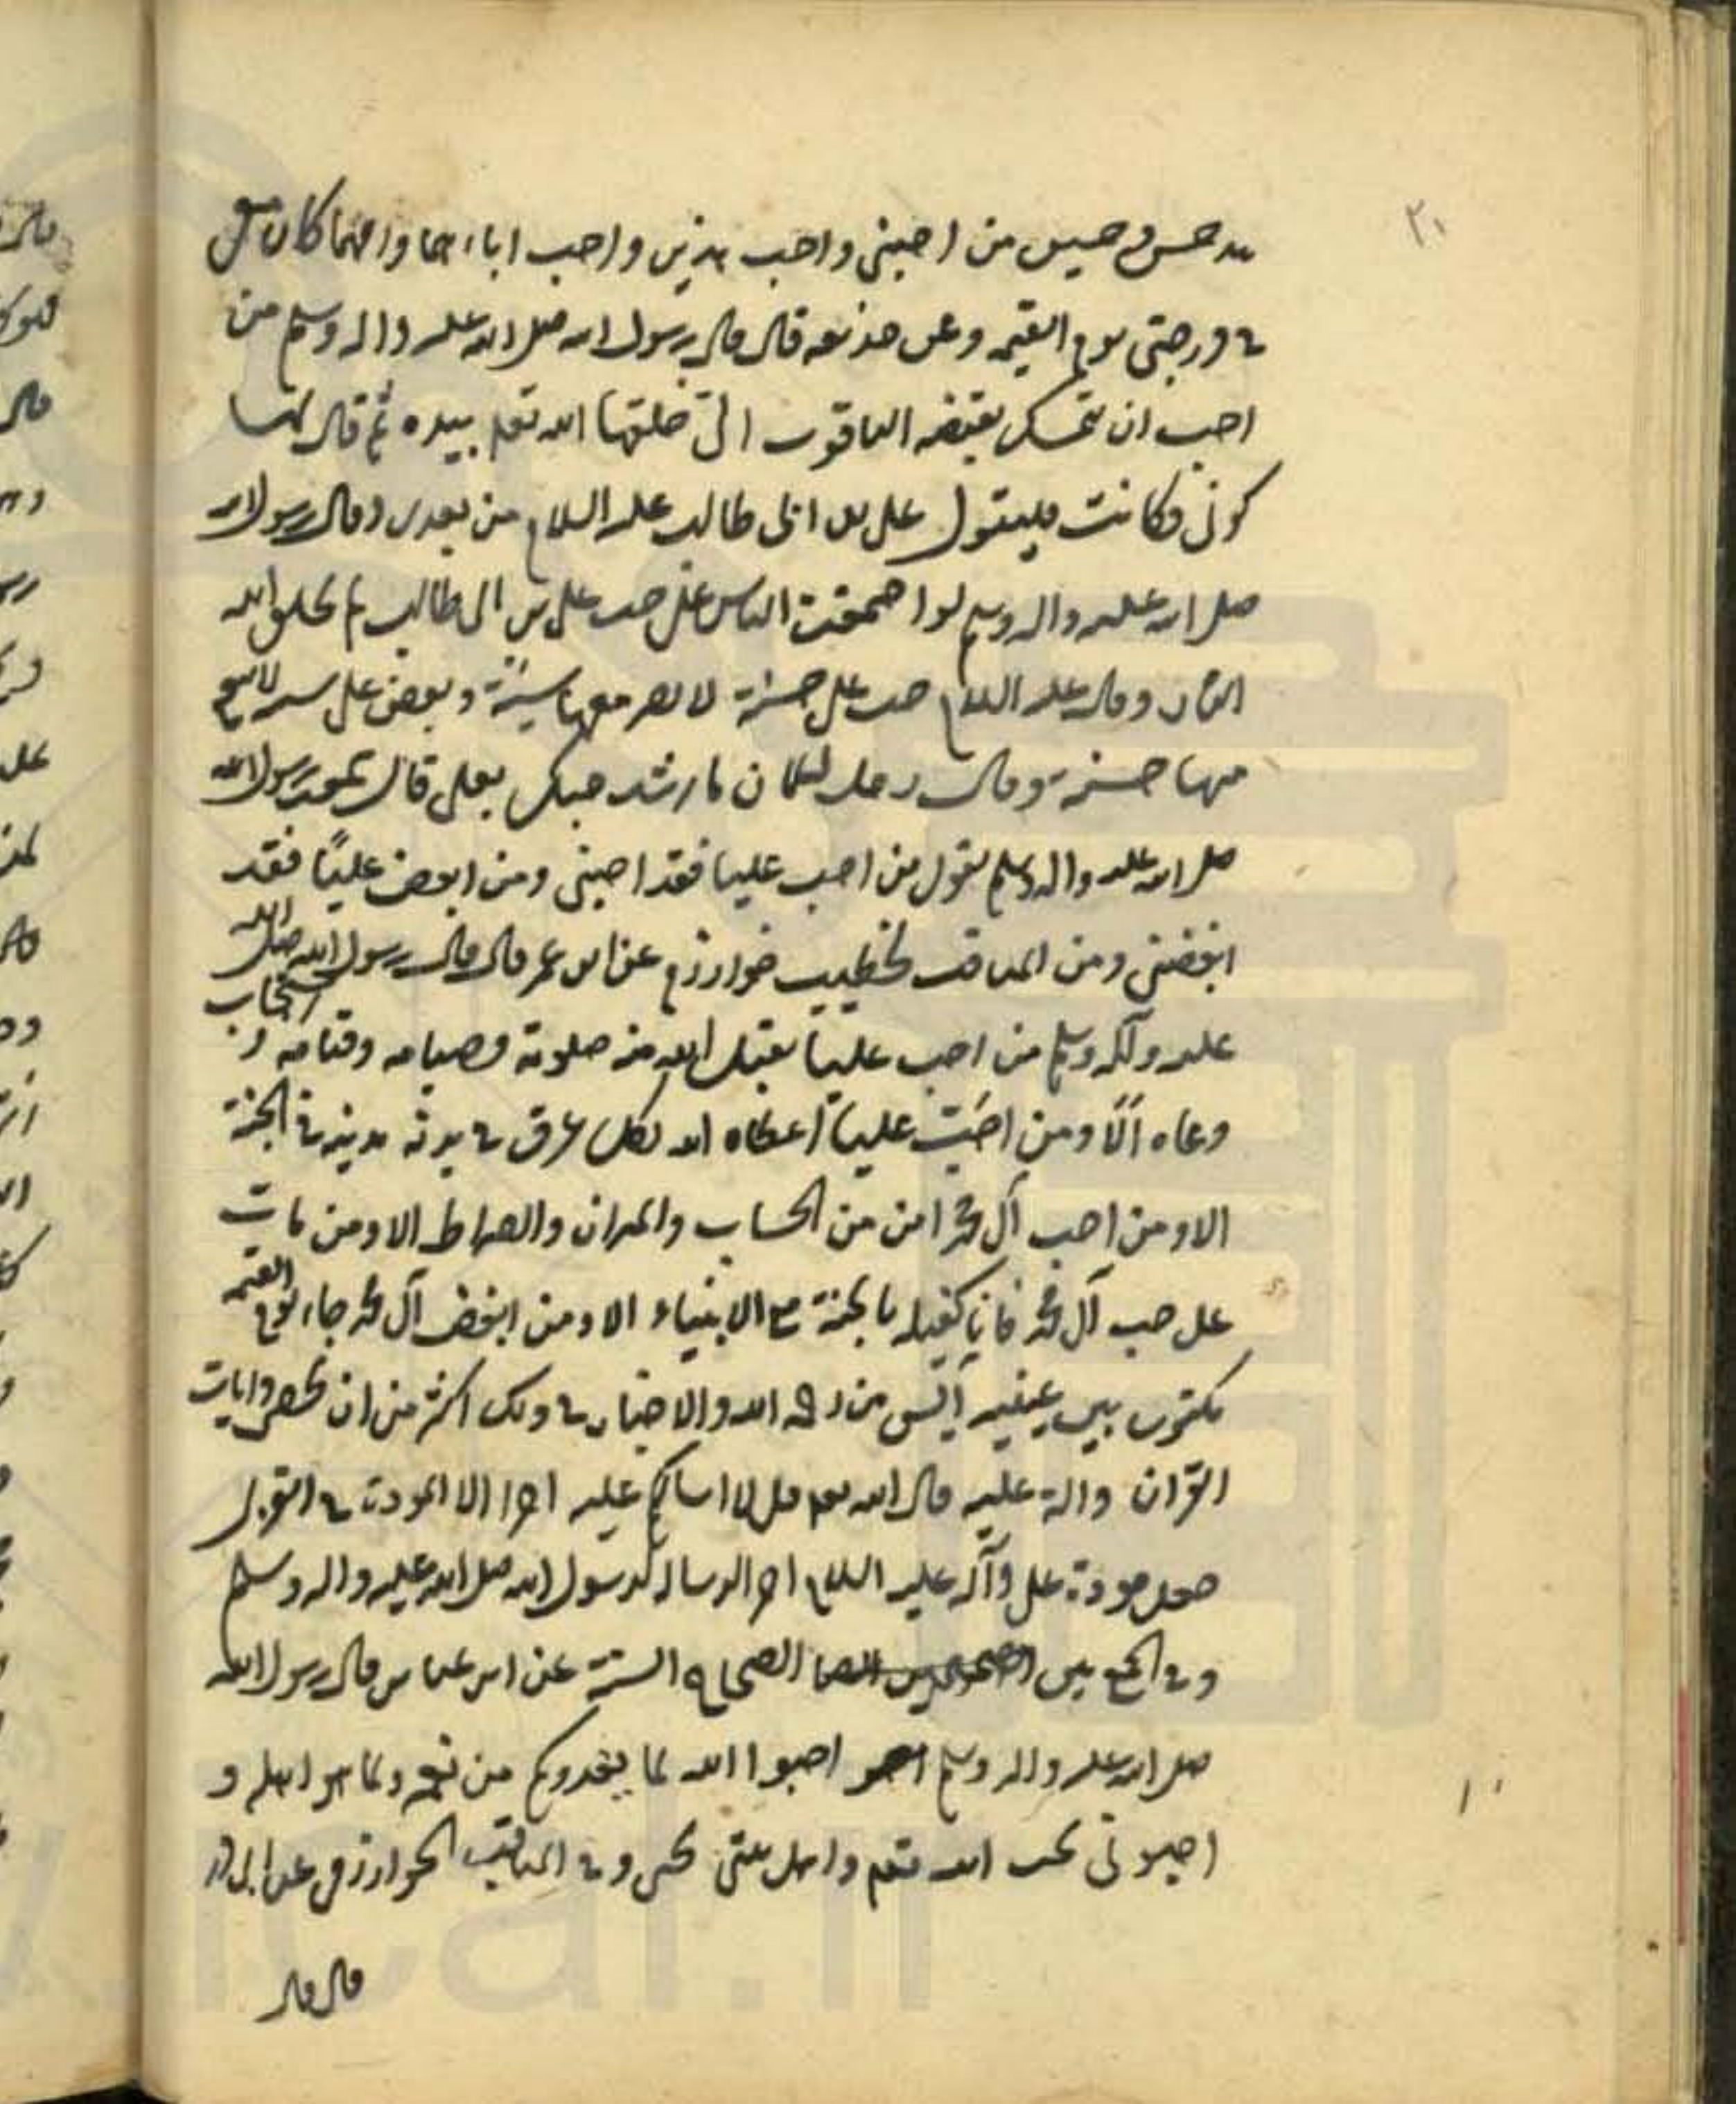 ٢١
يد حسن وحسين من احبنى واحب هذين واحب اباهما وامهما كان معى
فى درجتى يوم القيمه وعن حذيفه قال قال رسول الله صلى الله عليه واله وسلم من
احب ان يتمسك بقبضه الياقوت التى خلقها الله تعم بيده ثم قال لها
كونى فكانت فليتول على بن ابى طالب عليه السلام من بعدى وقال رسول الله
صلى الله عليه واله وسلم لو اجتمعت الناس على حب على بن ابى طالب لم يخلق الله
النار وقال عليه السلام حب على حسنة لا يضر معها سيئة وبغض على سيئة لا ينفع
معها حسنه وقال رجل لسلمان ما اشد حبك بعلى قال سمعت رسول الله
صلى الله عليه واله وسلم يقول من احب عليا فقد احبنى ومن ابغض عليًا فقد
ابغضنى ومن المناقب لخطيب خوارزم عن ابن عمر قال قال رسول الله صلى الله
عليه وآله وسلم من احب عليا يقبل الله منه صلوته وصيامه وقيامه واستجاب
دعاه ألا ومن احب عليا اعطاه الله بكل عرق فى بدنه مدينه فى الجنة
الا ومن احب آل محمد امن من الحساب والميزان والصراط الا ومن مات
على حب آل محمد فانا كفيله بالجنة مع الانبياء الا ومن ابغض آل محمد جاء يوم القيمه
مكتوب بين عينيه آيس من رحمه الله والاخبار فى ذلك اكثر من ان تحصى وايات
القران دالة عليه قال الله تعم قل لا اسالكم عليه اجرا الا المودة فى القربى
جعل مودة على وآله عليه السلام اجر الرساله لرسول الله صلى الله عليه واله وسلم
وفى الجمع بين الصحاح الستة عن ابن عباس قال رسول الله
صلى الله عليه واله وسلم احبوا الله لما يغدوكم من نعمه ولما هو اهله و
احبونى لحب الله تعم واهل بيتى لحبى وفى المناقب الخوارزمى عن ابى ذر
قال قال